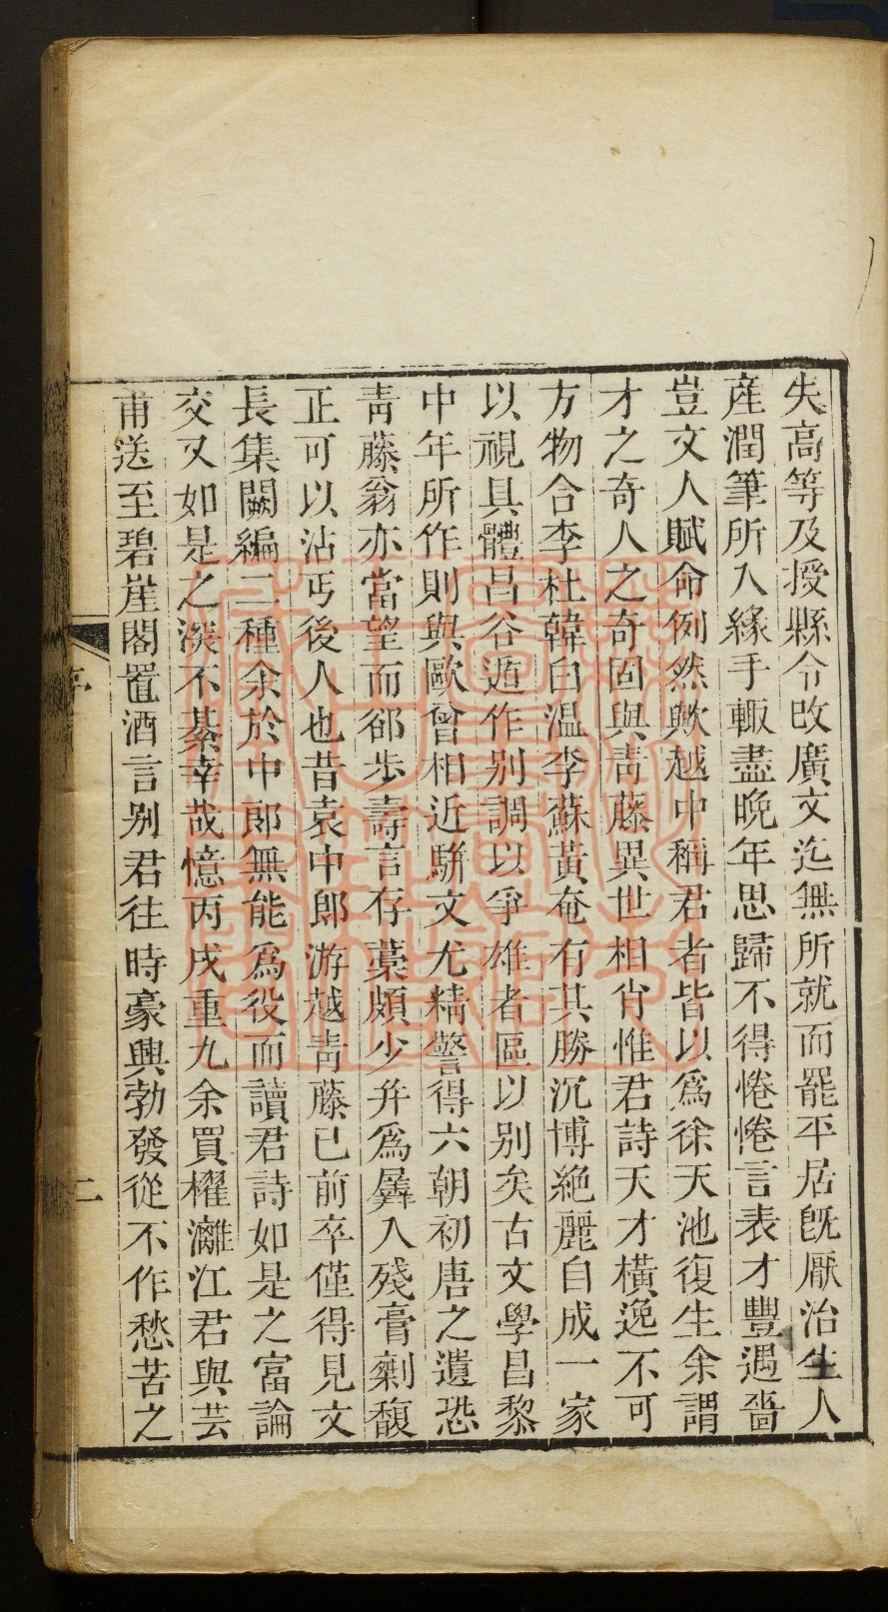 失高等及授縣令改廣文迄無所就而罷平居旣厭治生人
産潤筆所入緣手輙盡晚年思歸不得惓惓言表才豐遇嗇
豈文人賦命例然歟越中稱君者皆以爲徐天池復生余謂
才之奇人之奇固與靑藤異世相肖惟君詩天才橫逸不可
方物合李杜韓白溫李蘇黃奄有其勝沉博絶麗自成一家
以視具體昌谷遁作別調以爭雄者區以别矣古文學昌黎
中年所作則與歐曾相近駢文尤精警得六朝初唐之遺恐
靑藤翁亦當望而郤步壽言存藁頗少幷爲羼入殘膏剩馥
正可以沾丐後人也昔袁中郎游越靑藤已前卒僅得見文
長集闕編二種余於中郎無能爲役而讀君詩如是之富論
交又如是之深不綦幸哉憶丙戌重九余買櫂灕江君與芸
甫送至碧崖閣置酒言别君往時豪興勃發從不作愁苦之
序
二